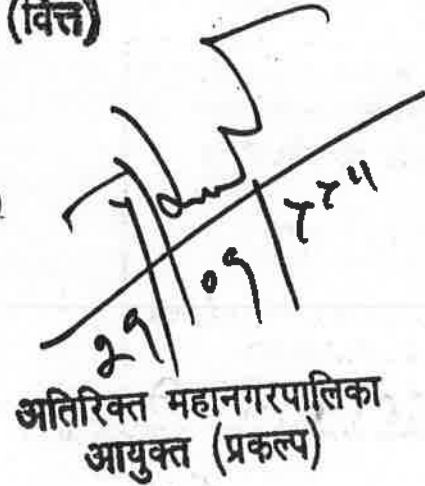 (वित्त)
२१/०१/
अतिरिक्त महानगरपालिका
आयुक्त (प्रकल्प)